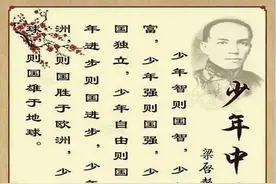 少年中
梁启超
少年智则国智，少
富，少年强则国强，少
国独立，少年自由则国
年进步则国进步，少
洲，则国胜于欧洲，少
球，则国雄于地球。